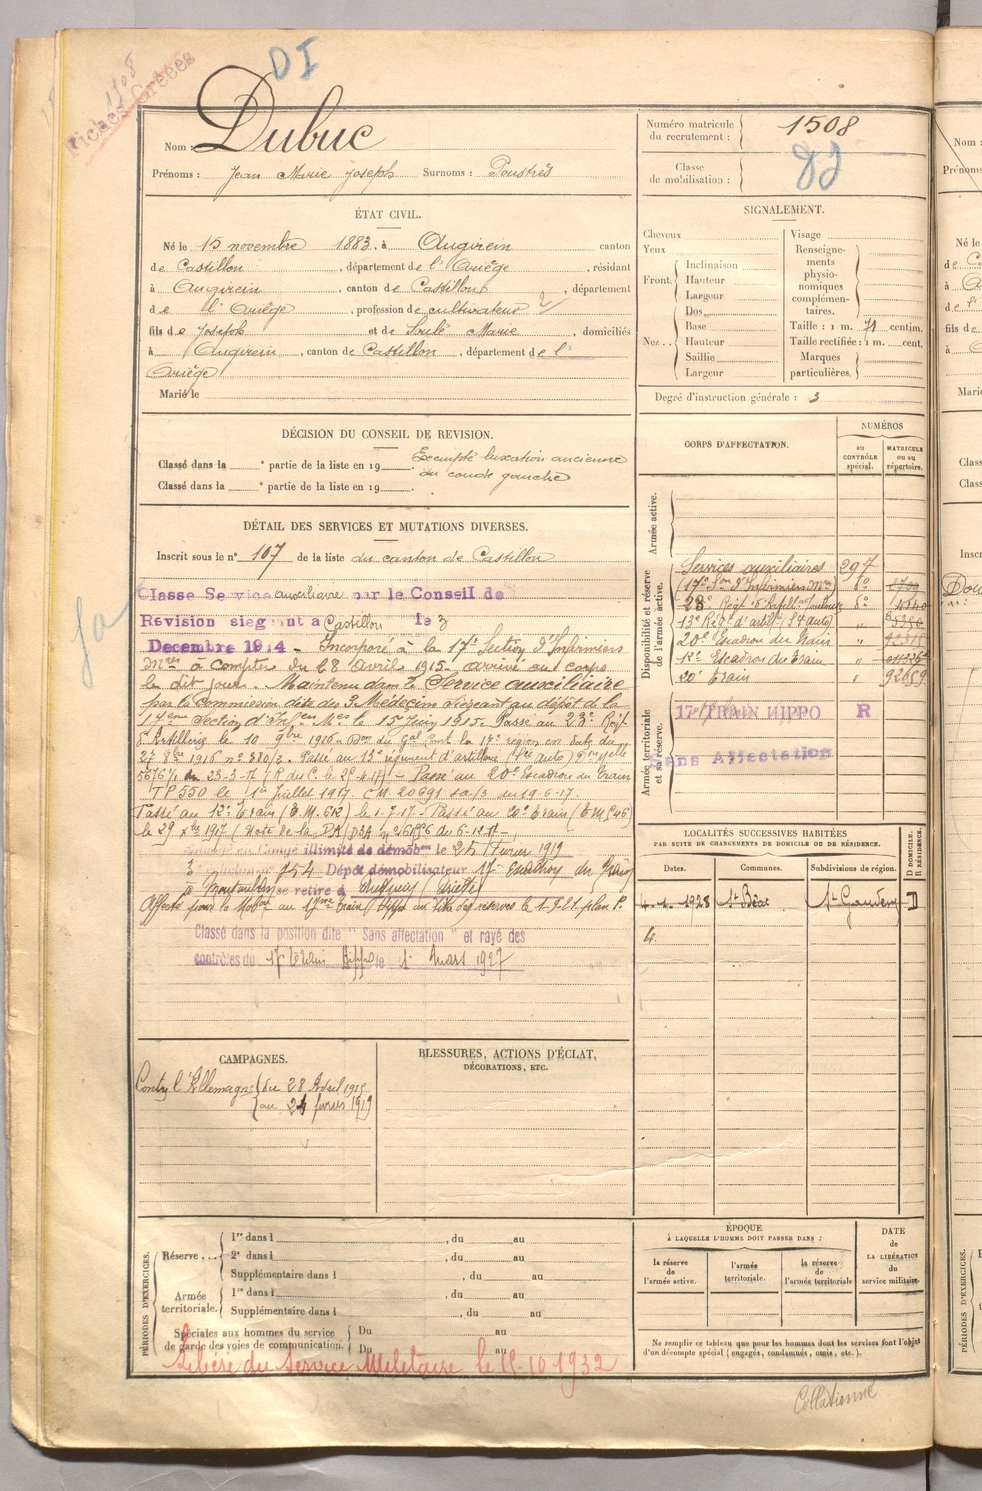 DI
1508
Fiches Créées
Nom : Dubuc
Prénoms : Jean Marie Joseph Surnoms : Poustrès
Numéro matricule du recrutement : 1508
Classe de mobilisation :
ÉTAT CIVIL.
Né le 15 novembre 1883, à Augirein canton
de Castillon, département de l'Ariège, résidant
à Augirein, canton de Castillon, département
de l'Ariège, profession de cultivateur 2
fils de Joseph et de Soulé Marie, domiciliés
à Augirein, canton de Castillon, département de l'
Ariège
Marié le
SIGNALEMENT.
Cheveux
Yeux
Front. Inclinaison
Hauteur
Largeur
Nez.. Dos
Base
Hauteur
Saillie
Largeur
Visage
Renseigne-
ments
physio-
nomiques
complémen-
taires.
Taille : 1 m. 71 centim.
Taille rectifiée : 1 m. cent.
Marques
particulières.
Degré d'instruction générale : 3
DÉCISION DU CONSEIL DE REVISION.
Classé dans la e partie de la liste en 19 Exempté luxation ancienne
Classé dans la e partie de la liste en 19 du coude gauche
DÉTAIL DES SERVICES ET MUTATIONS DIVERSES.
Inscrit sous le n° 107 de la liste du canton de Castillon
Classé Service auxiliaire par le Conseil de
Revision siégeant à Castillon le 3
Décembre 1914 - Incorporé à la 17e Section d'Infirmiers
Mres à compter du 28 Avril 1915 - arrivé au corps
le dit jour. Maintenu dans le Service auxiliaire
par la Commission dite des 3 Médecins siégeant au dépôt de la
17ème Section d'Infers Mres le 15 Juin 1915 - Passé au 23e Régt
d'Artillerie le 10 9bre 1916 du Gal Cont la 17e région en date du
27 8bre 1916 n° 380/2. Passé au 13e régiment d'artillerie
23-3-17 - Passé au 20e Escadron du Train
TP 550 le 1er Juillet 1917. CM 20691 du 19-6-17.
Passé au 12e Train (E.M. 612) le 1-7-17 - Passé au 20e Train
le 29 xbre 1917 (Note de la DA du 6-12-17 -
en Congé illimité de démobon le 25 Février 1919
3e 754 Dépôt démobilisateur 17e Escadron du Train
à Montauban se retire à
Affecté pour la Mobon au 17ème Train hippo au titre des réserves plan P.
Classé dans la position dite " Sans affectation " et rayé des
contrôles du 17 Train Hippo le 1er Mars 1927
CORPS D'AFFECTATION.
NUMÉROS
au CONTRÔLE spécial.
MATRICULE ou au répertoire.
Armée active.
Disponibilité et réserve de l'armée active.
Services auxiliaires 297
17e Son d'Infirmiers Mres do
23e Régt d'Artill. Toulouse do
13e Régt d'artill. (St auto) "
20e Escadron du Train "
12e Escadron du Train "
20e Train " 92659
Armée territoriale et sa réserve.
17e TRAIN HIPPO R
Sans Affectation
LOCALITÉS SUCCESSIVES HABITÉES
PAR SUITE DE CHANGEMENTS DE DOMICILE OU DE RÉSIDENCE.
Dates. Communes. Subdivisions de région. D DOMICILE. R RÉSIDENCE.
4.1.1928 St Béat St Gaudens D
4.
CAMPAGNES.
Contre l'Allemagne du 28 Avril 1915
au 24 février 1919
BLESSURES, ACTIONS D'ÉCLAT,
DÉCORATIONS, ETC.
PÉRIODES D'EXERCICES.
Réserve... 1re dans l , du au
2e dans l , du au
Supplémentaire dans l , du au
Armée territoriale. 1re dans l , du au
Supplémentaire dans l , du au
Spéciales aux hommes du service
de garde des voies de communication. Du au
Du au
Libéré du Service Militaire le 15-10-1932
ÉPOQUE
À LAQUELLE L'HOMME DOIT PASSER DANS :
la réserve de l'armée active.
l'armée territoriale.
la réserve de l'armée territoriale
DATE de LA LIBÉRATION du service militaire.
Ne remplir ce tableau que pour les hommes dont les services font l'objet
d'un décompte spécial (engagés, condamnés, omis, etc.).
Collationné